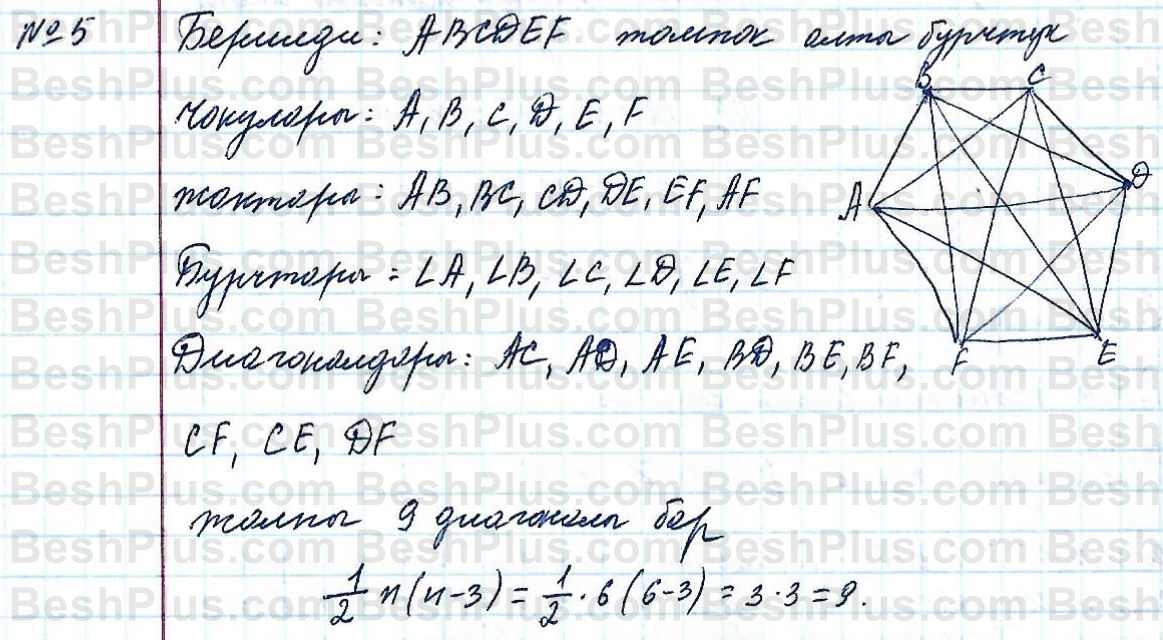 №5 Берилди: ABCDEF томпок алты бурчтук
B C
Чокулары: A, B, C, D, E, F
D
жактары: AB, BC, CD, DE, EF, AF
A
Бурчтары = ∠A, ∠B, ∠C, ∠D, ∠E, ∠F
Диагоналдары: AC, AD, AE, BD, BE, BF,
F E
CF, CE, DF
жалпы 9 диагоналы бар
1/2 n(n-3) = 1/2 · 6(6-3) = 3·3 = 9.
BeshPlus.com